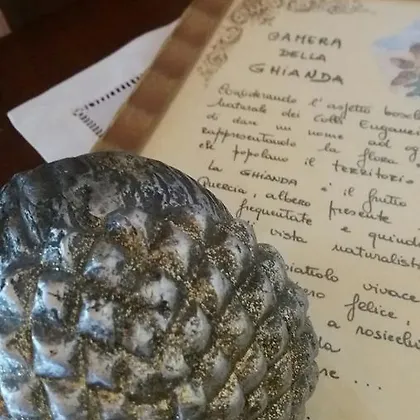 CAMERA
DELLA
GHIANDA
Considerando l'aspetto bosch
naturale dei Colli Euganei
di dare un nome ad og
rappresentando la flora
che popolano il territorio
La GHIANDA è il frutto
Quercia, albero presente
frequentate e quindi
vista naturalist
vivace
felice,
a rosicchi
...